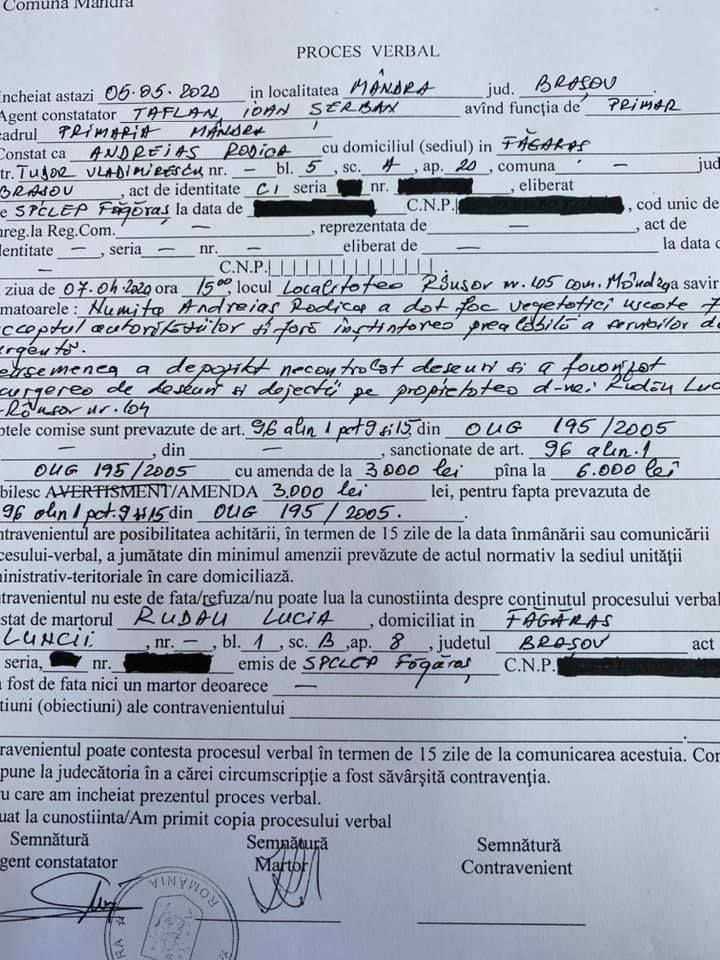 Comuna Mândra
PROCES VERBAL
Incheiat astazi 06.05.2020 in localitatea MÂNDRA jud. BRAȘOV
Agent constatator TAFLAN IOAN SERBAN avînd funcția de PRIMAR
cadrul PRIMARIA MÂNDRA
Constat ca ANDREIAS RODICA cu domiciliul (sediul) in FĂGĂRAȘ
tr. TUDOR VLADIMIRESCU nr. — bl. 5, sc. A, ap. 20, comuna — jud
BRASOV, act de identitate CI seria nr. , eliberat
e SPCLEP Făgăraș la data de C.N.P. , cod unic de
nreg.la Reg.Com. — , reprezentata de — , act de
dentitate — , seria — nr. — eliberat de — la data d
— C.N.P.
ziua de 07.04.2020 ora 15⁰⁰, locul Localitatea Râușor nr. 105 com. Mândra savir
matoarele : Numita Andreias Rodica a dat foc vegetatiei uscate f
acceptul autorităților si fară înștiintarea prealabilă a serviciilor de
urgentă.
a depozitat necontrolat deseuri si a favorizat
scurgerea de deseuri si dejectii pe proprietatea d-nei Rudău Luc
-Râușor nr. 104
ptele comise sunt prevazute de art. 96 alin 1 pct 9 si 15, din OUG 195/2005
— , din — , sanctionate de art. 96 alin. 1
OUG 195/2005 cu amenda de la 3.000 lei pîna la 6.000 lei
bilesc AVERTISMENT/AMENDA 3.000 lei lei, pentru fapta prevazuta de
96 alin 1 pct. 9 si 15 din OUG 195/2005.
ntravenientul are posibilitatea achitării, în termen de 15 zile de la data înmânării sau comunicării
cesului-verbal, a jumătate din minimul amenzii prevăzute de actul normativ la sediul unității
ministrativ-teritoriale în care domiciliază.
ntravenientul nu este de fata/refuza/nu poate lua la cunostiinta despre conținutul procesului verbal
stat de martorul RUDĂU LUCIA, domiciliat in FĂGĂRAȘ
LUNCII, nr. —, bl. 1, sc. B, ap. 8, judetul BRAȘOV act
seria, nr. emis de SPCLEP Făgăraș C.N.P.
a fost de fata nici un martor deoarece —
tiuni (obiectiuni) ale contravenientului
ravenientul poate contesta procesul verbal în termen de 15 zile de la comunicarea acestuia. Con
pune la judecătoria în a cărei circumscripție a fost săvârșită contravenția.
ru care am incheiat prezentul proces verbal.
uat la cunostiinta/Am primit copia procesului verbal
Semnătură Semnătură Semnătură
gent constatator Martor Contravenient
ROMÂNIA